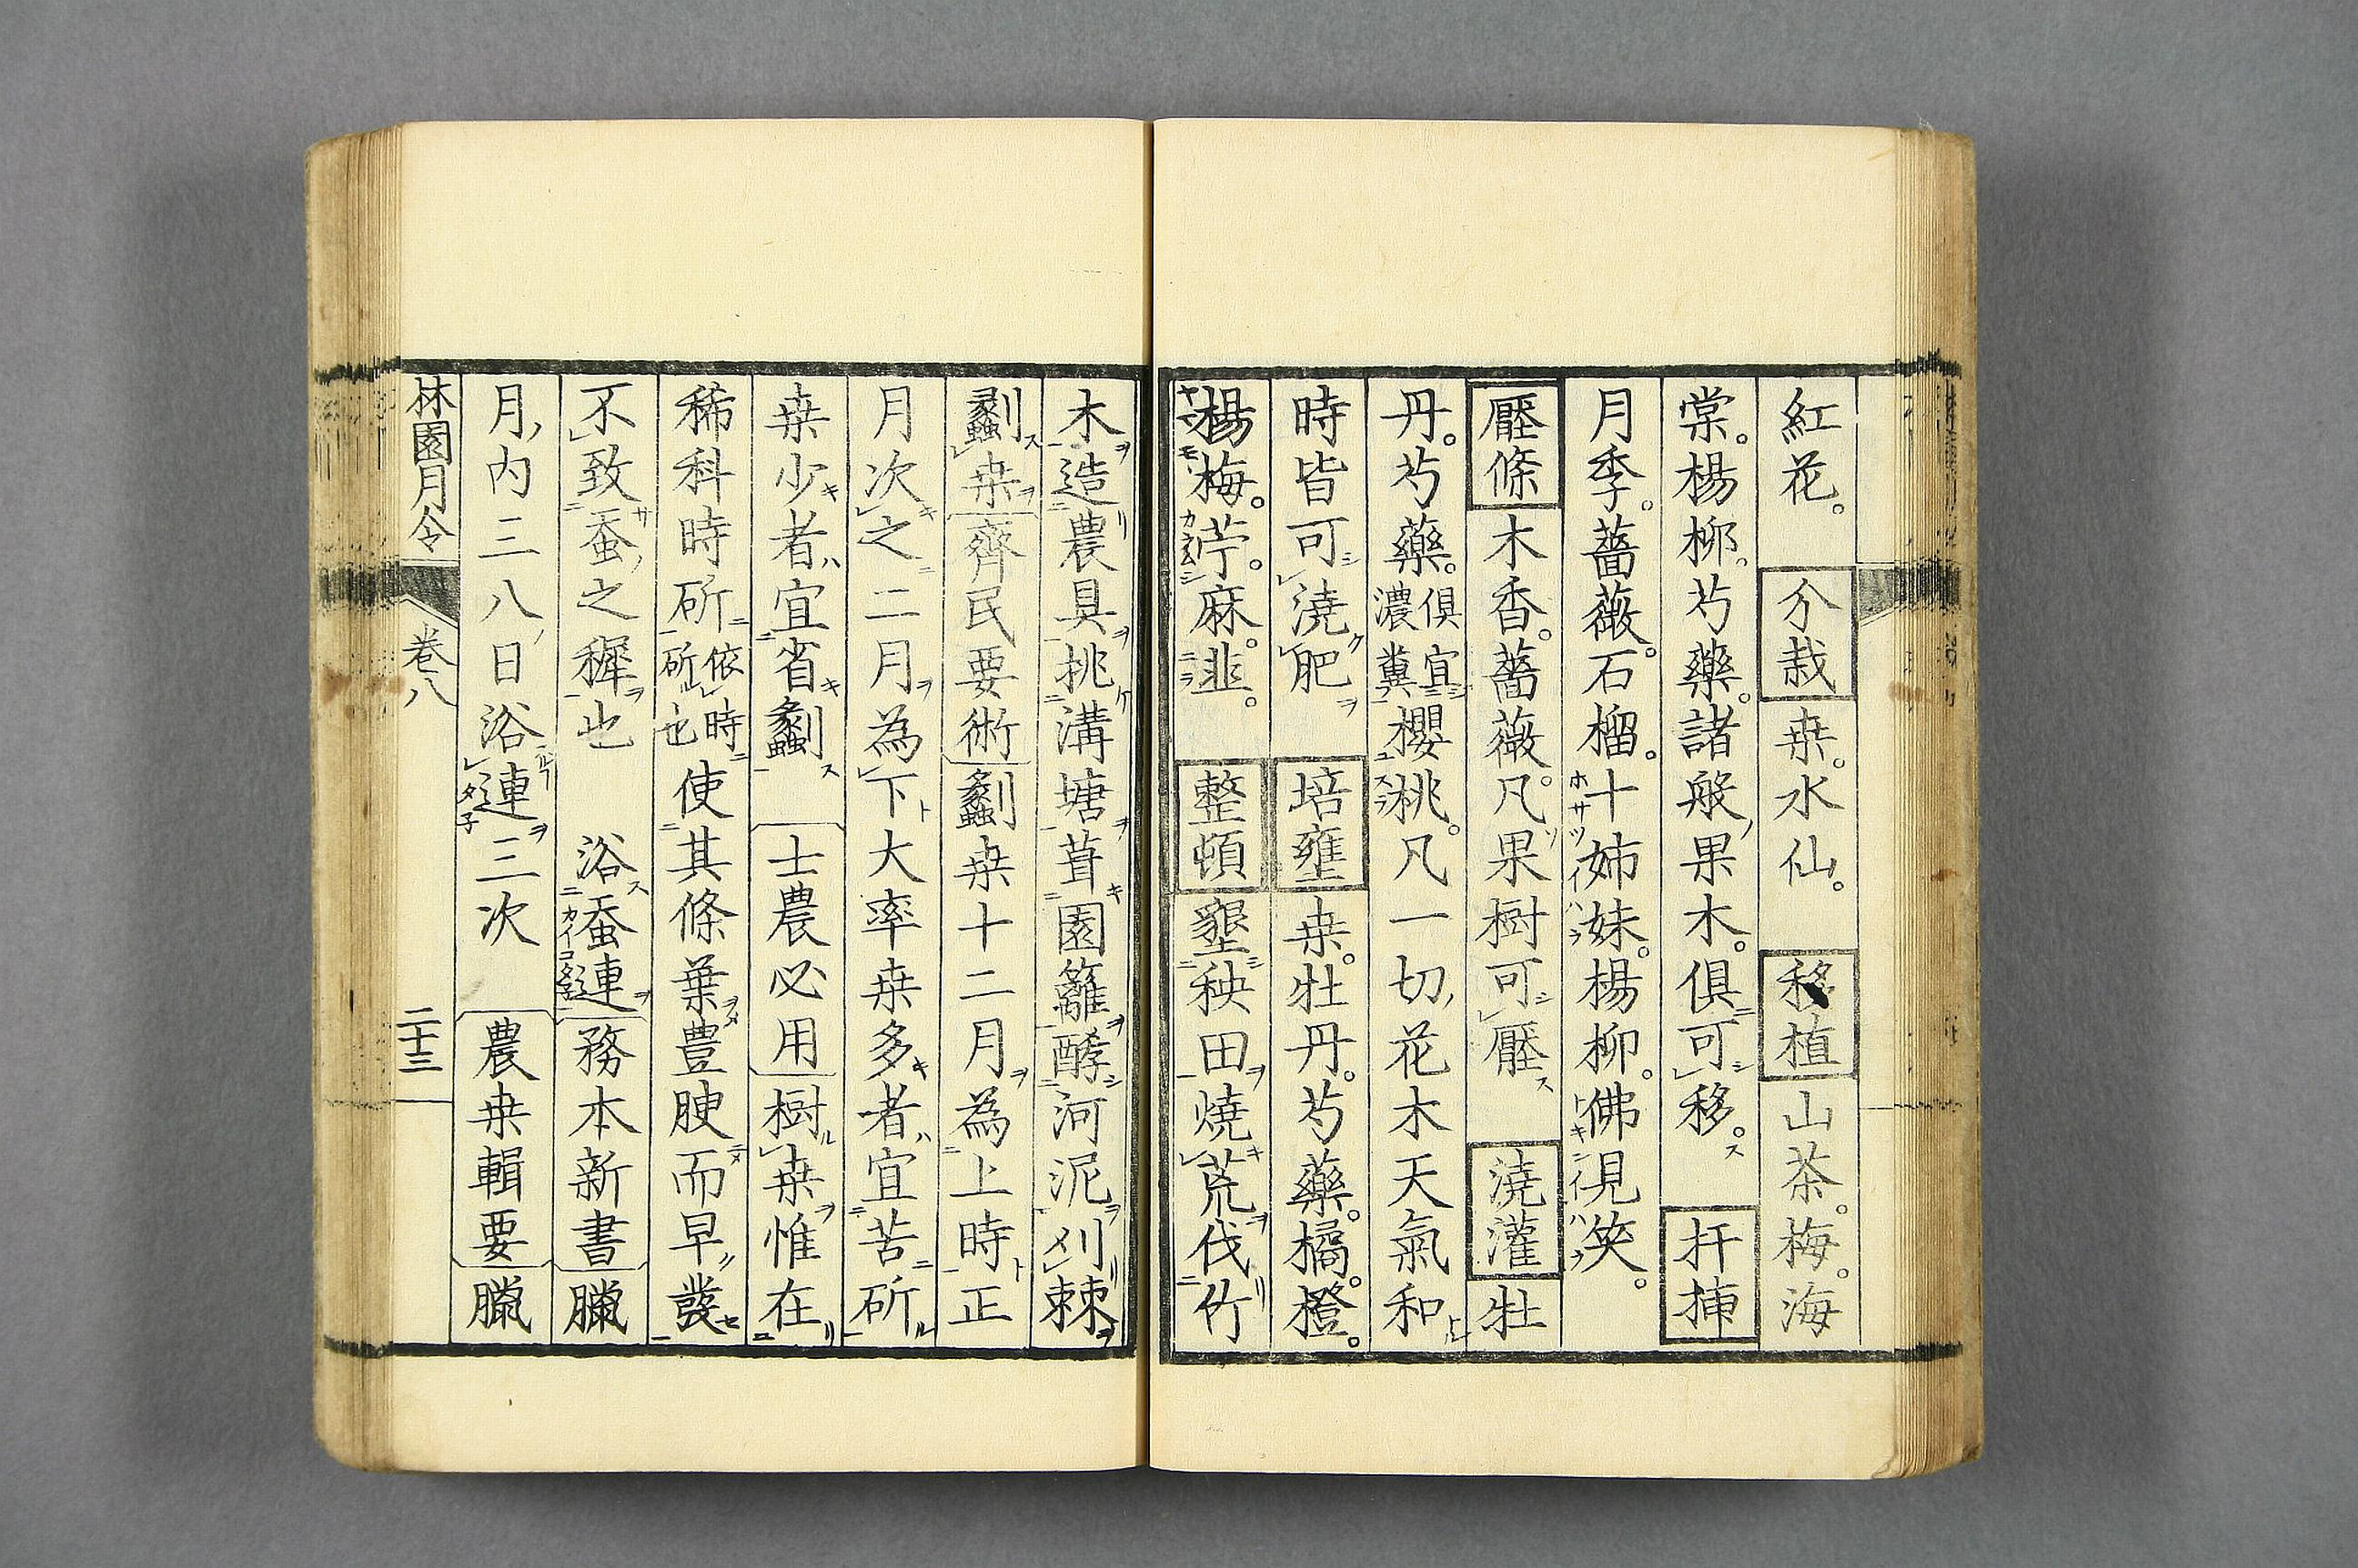 紅花。分栽桒。水仙。移植山茶。梅。海
棠。楊柳。芍藥。諸般果木。俱可移。扦揷
月季。薔薇。石榴。十姉妹。楊柳。佛見笑。
壓條木香。薔薇。凡果樹可壓澆灌牡
丹。芍藥。俱宜濃糞櫻桃。凡一切花木天氣和
時皆可澆肥培壅桒。牡丹。芍藥。橘。橙。
楊梅。苧麻。韭。整頓墾秧田燒荒伐竹
木造農具挑溝塘葺園籬酵河泥刈棘
劙桒齊民要術劙桒十二月為上時正
月次之二月為下大率桒多者宜苦斫
桒少者宜省劙士農必用樹桒惟在
稀科時斫依時斫也使其條葉豊腴而早發
不致蚕之穉也浴蚕連務本新書臘
月內三八日浴連三次農桒輯要臘
林園月令 卷八 二十三